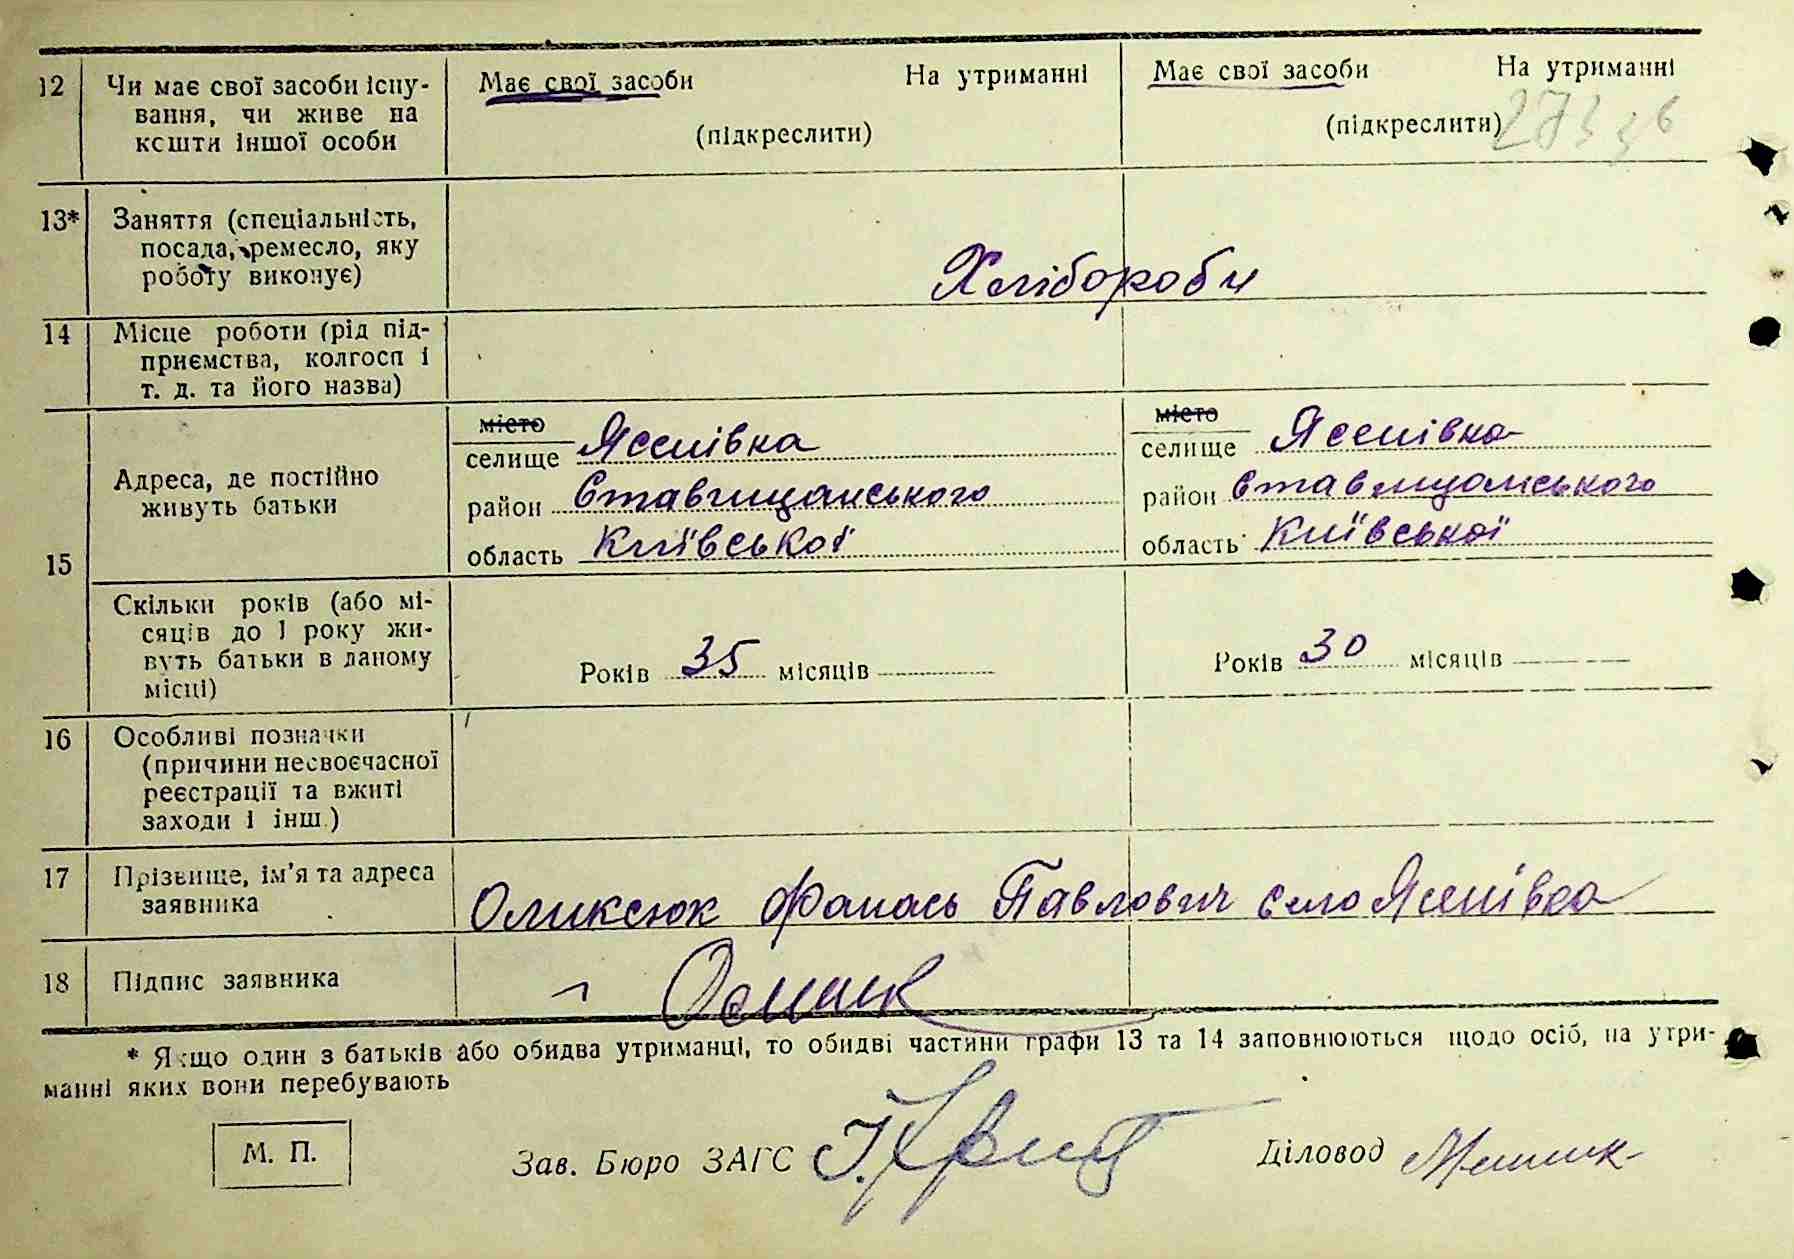 12 Чи має свої засоби існу-
вання, чи живе на
кошти іншої особи
Має свої засоби На утриманні
(підкреслити)
Має свої засоби На утриманні
(підкреслити)
13* Заняття (спеціальність,
посада, ремесло, яку
роботу виконує)
Хлібороби
14 Місце роботи (рід під-
приємства, колгосп і
т. д. та його назва)
15 Адреса, де постійно
живуть батьки
місто
селище Ясенівка
район Ставищанського
область Київської
місто
селище Ясенівка
район Ставищанського
область Київської
Скільки років (або мі-
сяців до 1 року жи-
вуть батьки в даному
місці)
Років 35 місяців
Років 30 місяців
16 Особливі позначки
(причини несвоєчасної
реєстрації та вжиті
заходи і інш.)
17 Прізвище, ім'я та адреса
заявника
Оликсюк Фанась Павлович село Ясенівка
18 Підпис заявника
* Якщо один з батьків або обидва утриманці, то обидві частини графи 13 та 14 заповнюються щодо осіб, на утри-
манні яких вони перебувають
М. П.
Зав. Бюро ЗАГС
Діловод